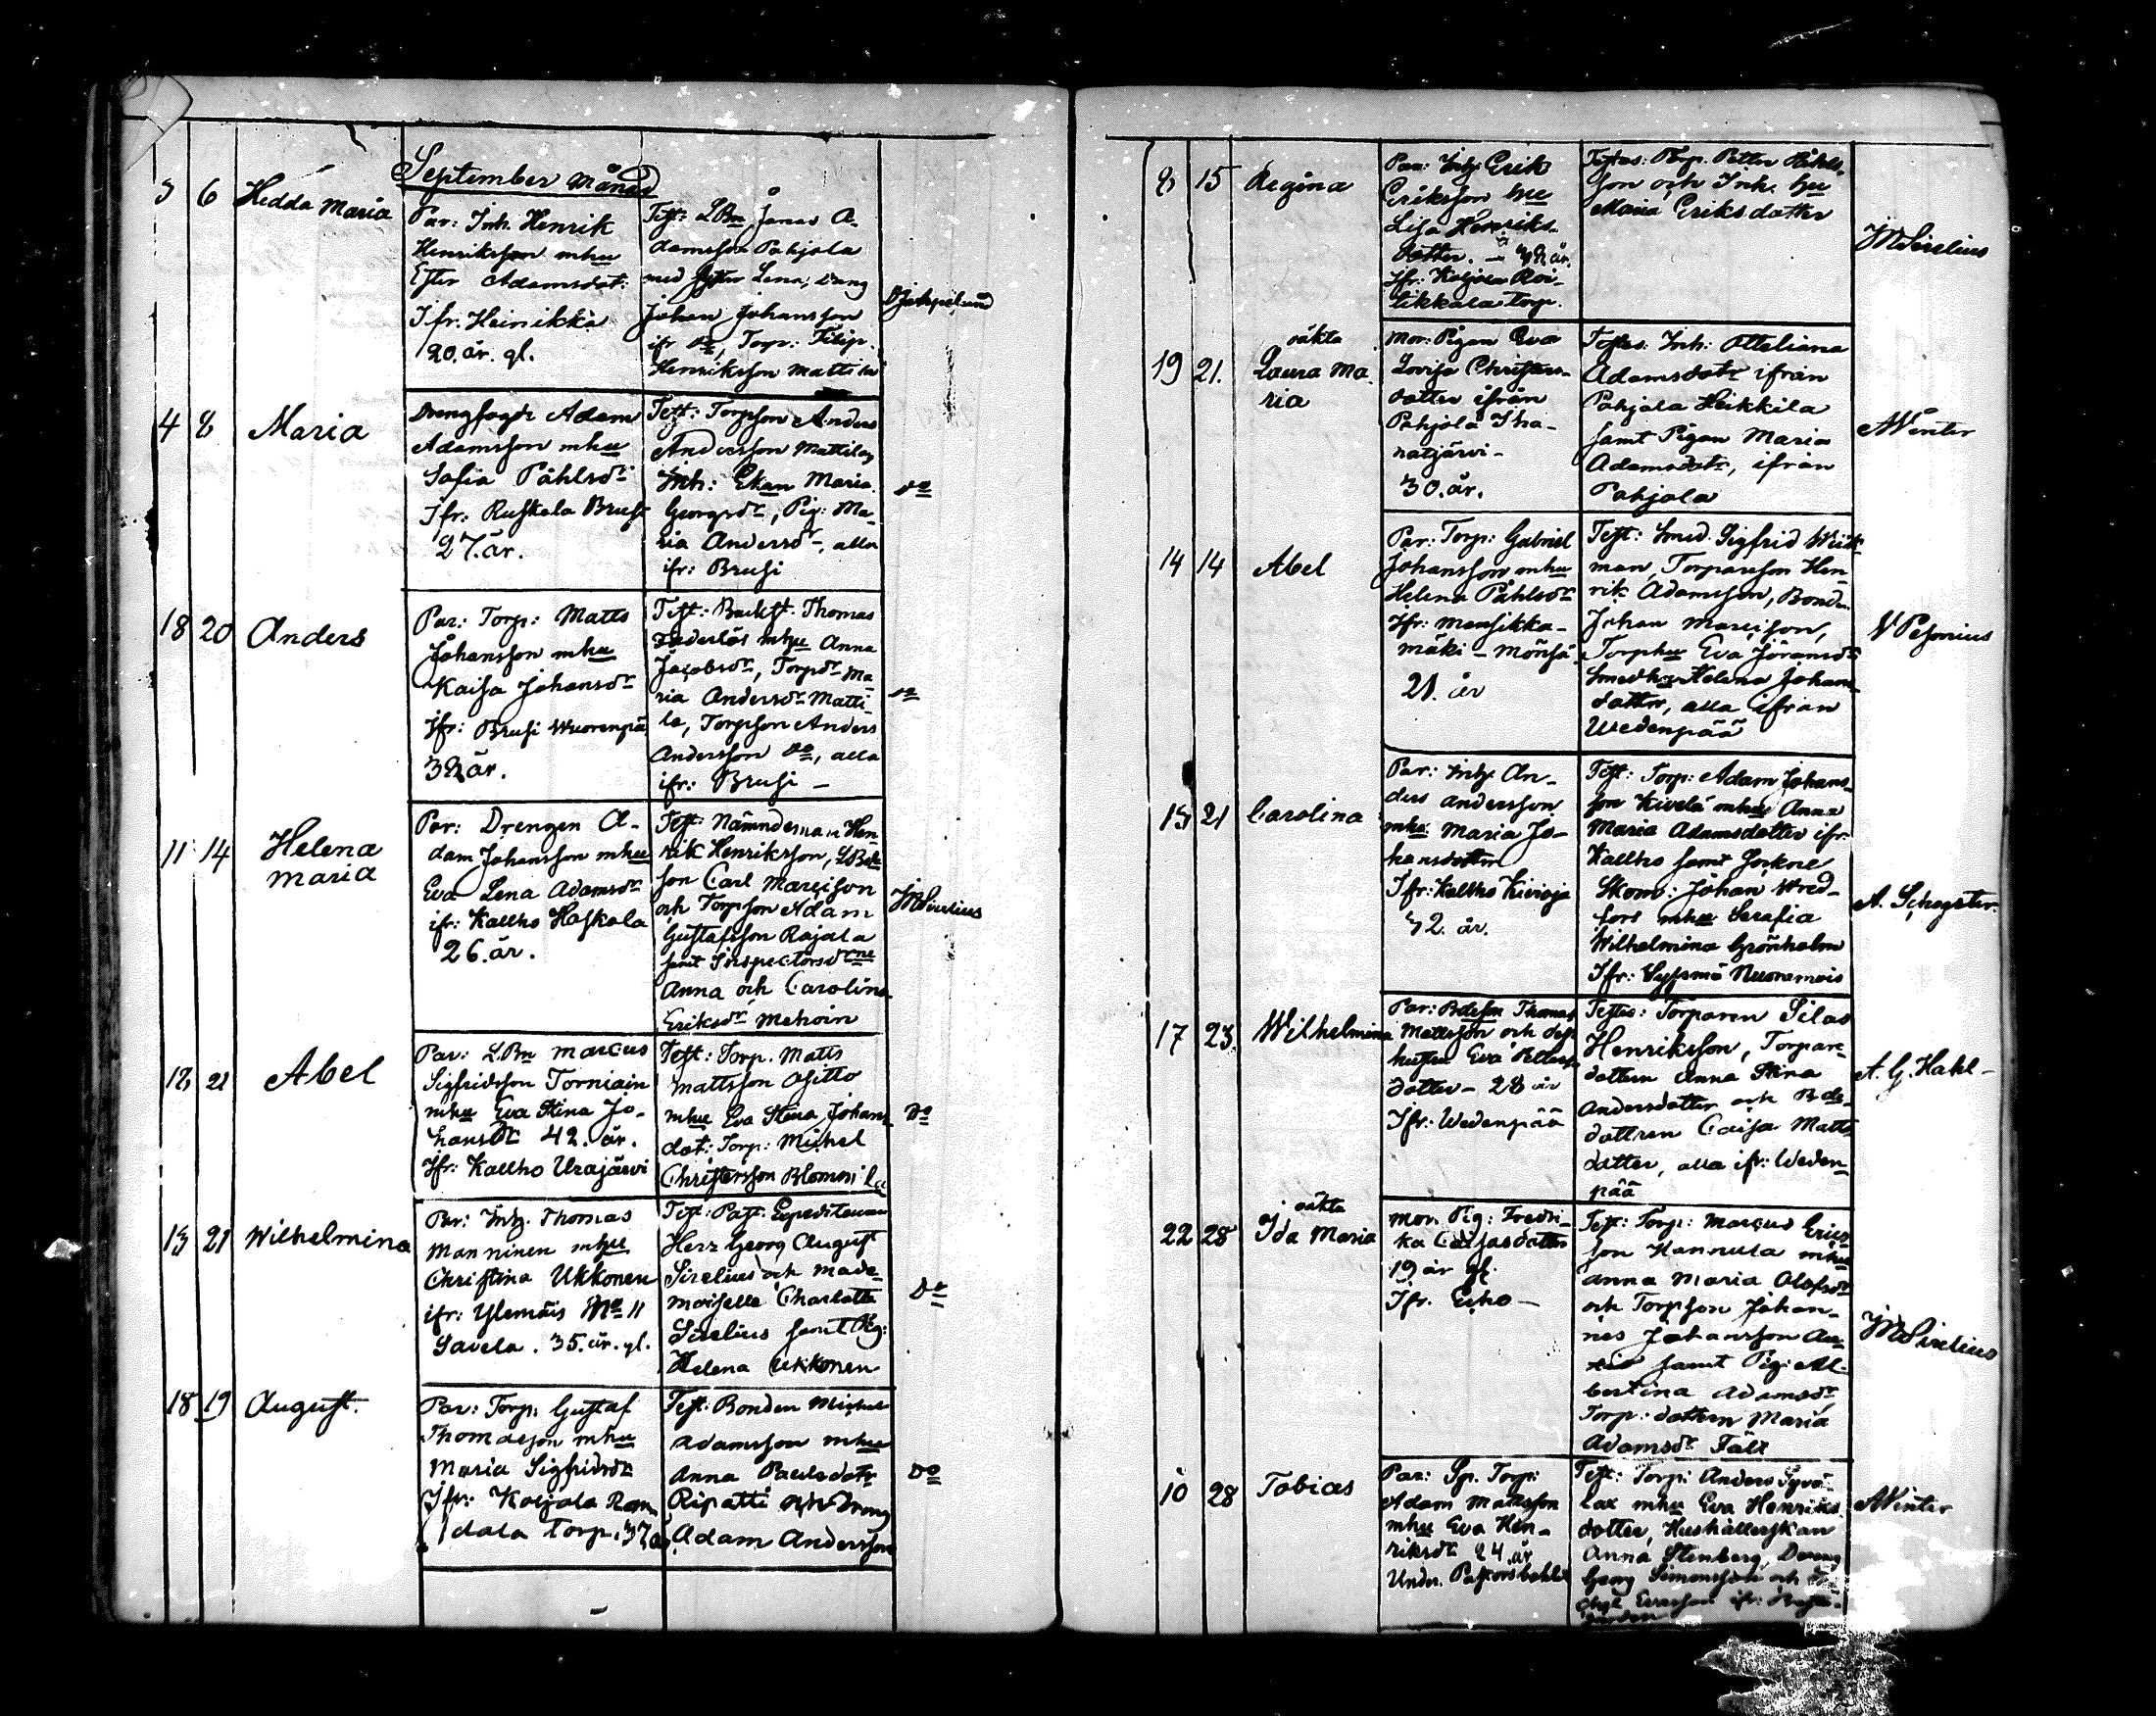 September Månad
5 6 Hedda Maria
Par: Inh. Henrik
Henriksson mhu
Ester Adamsdot:
Ifr: Heinikka
20. år. gl.
Test: LBn Jonas A-
damsson Pahjola
med syster Lena, Dräng
Johan Johansson
ifr Do, Torp: Filip
Henriksson Mattila
4 8 Maria
Drengfogde Adam
Adamsson mhu
Sofia Påhlsdr
Ifr: Ruskala Brusi
27. år.
Test: Torpson Anders
Andersson Mattilas
Inh: Enkan Maria
Georgsdr, Pig: Ma-
ria Andersdr, alla
ifr: Brusi
Do
18 20 Anders
Par: Torp: Matts
Johansson mhu
Kaisa Johansdr
Ifr: Brusi Wuorenpä
32 år.
Test: Backst. Thomas
Faderlös mhu Anna
Jacobsdr, Torpdr Ma-
ria Andersdr Matti-
la, Torpson Anders
Andersson Do, alla
ifr: Brusi –
Do
11 14 Helena
Maria
Par: Drengen A-
dam Johansson mhu
Eva Lena Adamsdr
ifr: Kallho Haskala
26. år.
Test: Nämndeman Hen-
rik Henriksson, LBde
son Carl Marcison
och Torpson Adam
Gustafsson Rajala
samt Inspectorsdrne
Anna och Carolina
Eriksdr Mehoin
JMSirelius
18 21 Abel
Par: LBn Marcus
Sigfridsson Torniain
mhu Eva Stina Jo-
hansdr 42. år.
Ifr: Kallho Urajärvi
Test: Torp. Matts
Mattsson Ositto
mhu Eva Stina Johans-
dot: Torp: Michel
Christersson Blomori la
Do
13 21 Wilhelmina
Par: Inh. Thomas
Manninen mhu
Christina Ukkonen
ifr: Ylemäis No 11
Savela. 35. år. gl.
Test: Past: Expediteuren
Herr Georg August
Sirelius och Made-
moiselle Charlotta
Sirelius samt Pig:
Helena Ukkonen
Do
18 19 August.
Par: Torp: Gustaf
Thomasson mhu
Maria Sigfridsdr
Ifr: Koljala Ran
dala Torp. 37 år
Test: Bonden Michel
Adamsson mhu
Anna Paulsdotr
Ripatti och Dreng
Adam Andersson
Do
8 15 Regina
Par: Inh: Erik
Eriksson hu
Lisa Henriks-
dotter. – 42 år.
Ifr: Koljala Roi-
tikkala Torp.
Testes: Torp. Petter Påhls-
son och Inh. hu
Maria Eriksdotter
JMSirelius
19 21. oäkta
Laura Ma-
ria
Mor: Pigan Eva
Lovisa Christers-
dotter ifrån
Pahjola Iha-
natjärvi –
30. år.
Testes: Inh: Ottiliana
Adamsdotr ifrån
Pahjola Heikkila
samt Pigan Maria
Adamsdotr, ifrån
Pahjola
AWinter
14 14 Abel
Par: Torp: Gabriel
Johansson mhu
Helena Påhlsdr
Ifr: Mansikka-
mäki – Mönsä
21. år
Test: Smed. Sigfrid Weik-
man, Torpareson Hen-
rik Adamsson, Bonde
Johan Marcison,
Torphu Eva Jöransdr
Smedhu Helena Johans-
dotter, alla ifrån
Wedenpää
13 21 Carolina
Par: Inh: An-
ders Andersson
mhu Maria Jo-
hansdotter
Ifr: Kallho Kivioja
42. år.
Test: Torp: Adam Johans-
son Kivelä mhu Anna
Maria Adamsdotter ifr
Kallho samt Sockne
Skom: Johan Wred-
fors mhu Serafia
Wilhelmina Grönholm
Ifr: Sysmä Nuoramois
17 23. Wilhelmina
Par: Bdeson Thomas
Mattsson och dess
hustru Eva Petters-
dotter – 28 år
Ifr: Wedenpää
Testes: Torparen Silas
Henriksson, Torpare-
dottern Anna Stina
Andersdotter och Bde-
dottren Caisa Matts-
dotter, alla ifr: Weden-
pää
A. G. Hahl –
22 28 oäkta
Ida Maria
Mor. Pig: Fredri-
ka Caisasdotter
19 år gl.
Ifr. Echo –
Test: Torp: Marcus Erics-
son Hannula mhu
Anna Maria Olofsdr
och Torpson Johan-
nes Johansson
samt Pig: Al-
bertina Adamsdr,
Torp: dottern Maria
Adamsdr Fält
JMSirelius
10 28 Tobias
Par: Sp. Torp:
Adam Mattsson
mhu Eva Hen-
riksdr 24 år
Under. Pastorsbohle
Test: Torp: Anders Syvä-
lax mhu Eva Henriks
dotter, Hushållerskan
Anna Stenberg, Dreng
Georg Simonsson och
AWinter